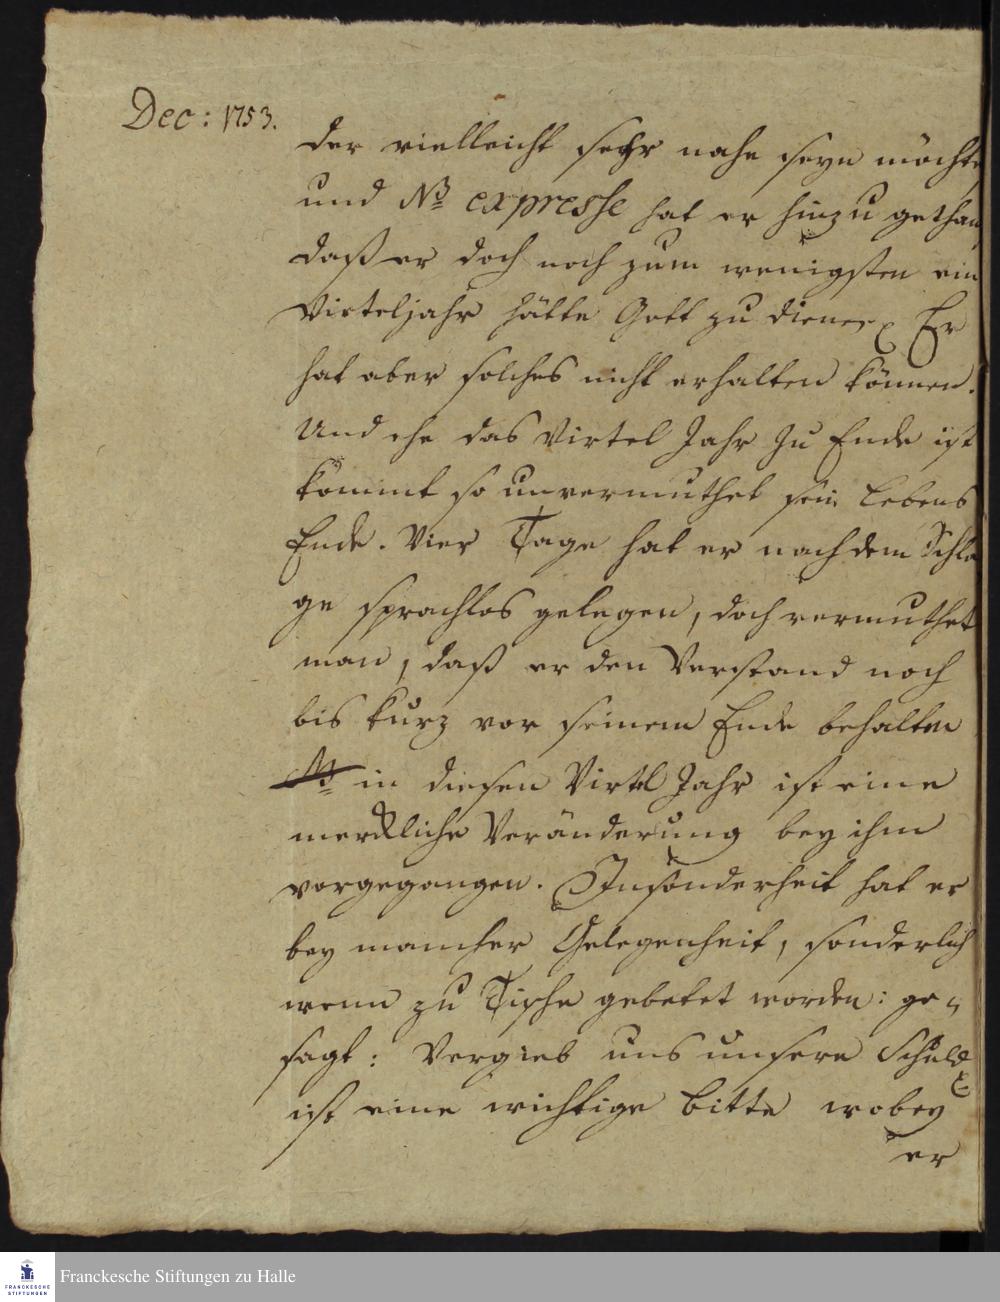 Dec: 1753.
der vielleicht sehr nahe seyn möchte
und NB expresse hat er hinzu gethan,
daß er doch noch zum wenigsten ein
Virteljahr hätte Gott zu dienen. Er
hat aber solches nicht erhalten können.
Und ehe das Virtel Jahr zu Ende ist
kommt so unvermuthet sein Lebens
Ende. Vier Tage hat er nach dem Schla
ge sprachlos gelegen, doch vermuthet
man, daß er den Verstand noch
bis kurz vor seinem Ende behalten
in diesen Virtel Jahr ist eine
merckliche Veränderung bey ihm
vorgegangen. Insonderheit hat er
bey mancher Gelegenheit, sonderlich
wenn zu Tische gebetet worden: ge-
sagt: Vergieb uns unsere Schuld
ist eine wichtige bitte wobey
er
FRANCKESCHE
STIFTUNGEN
Franckesche Stiftungen zu Halle